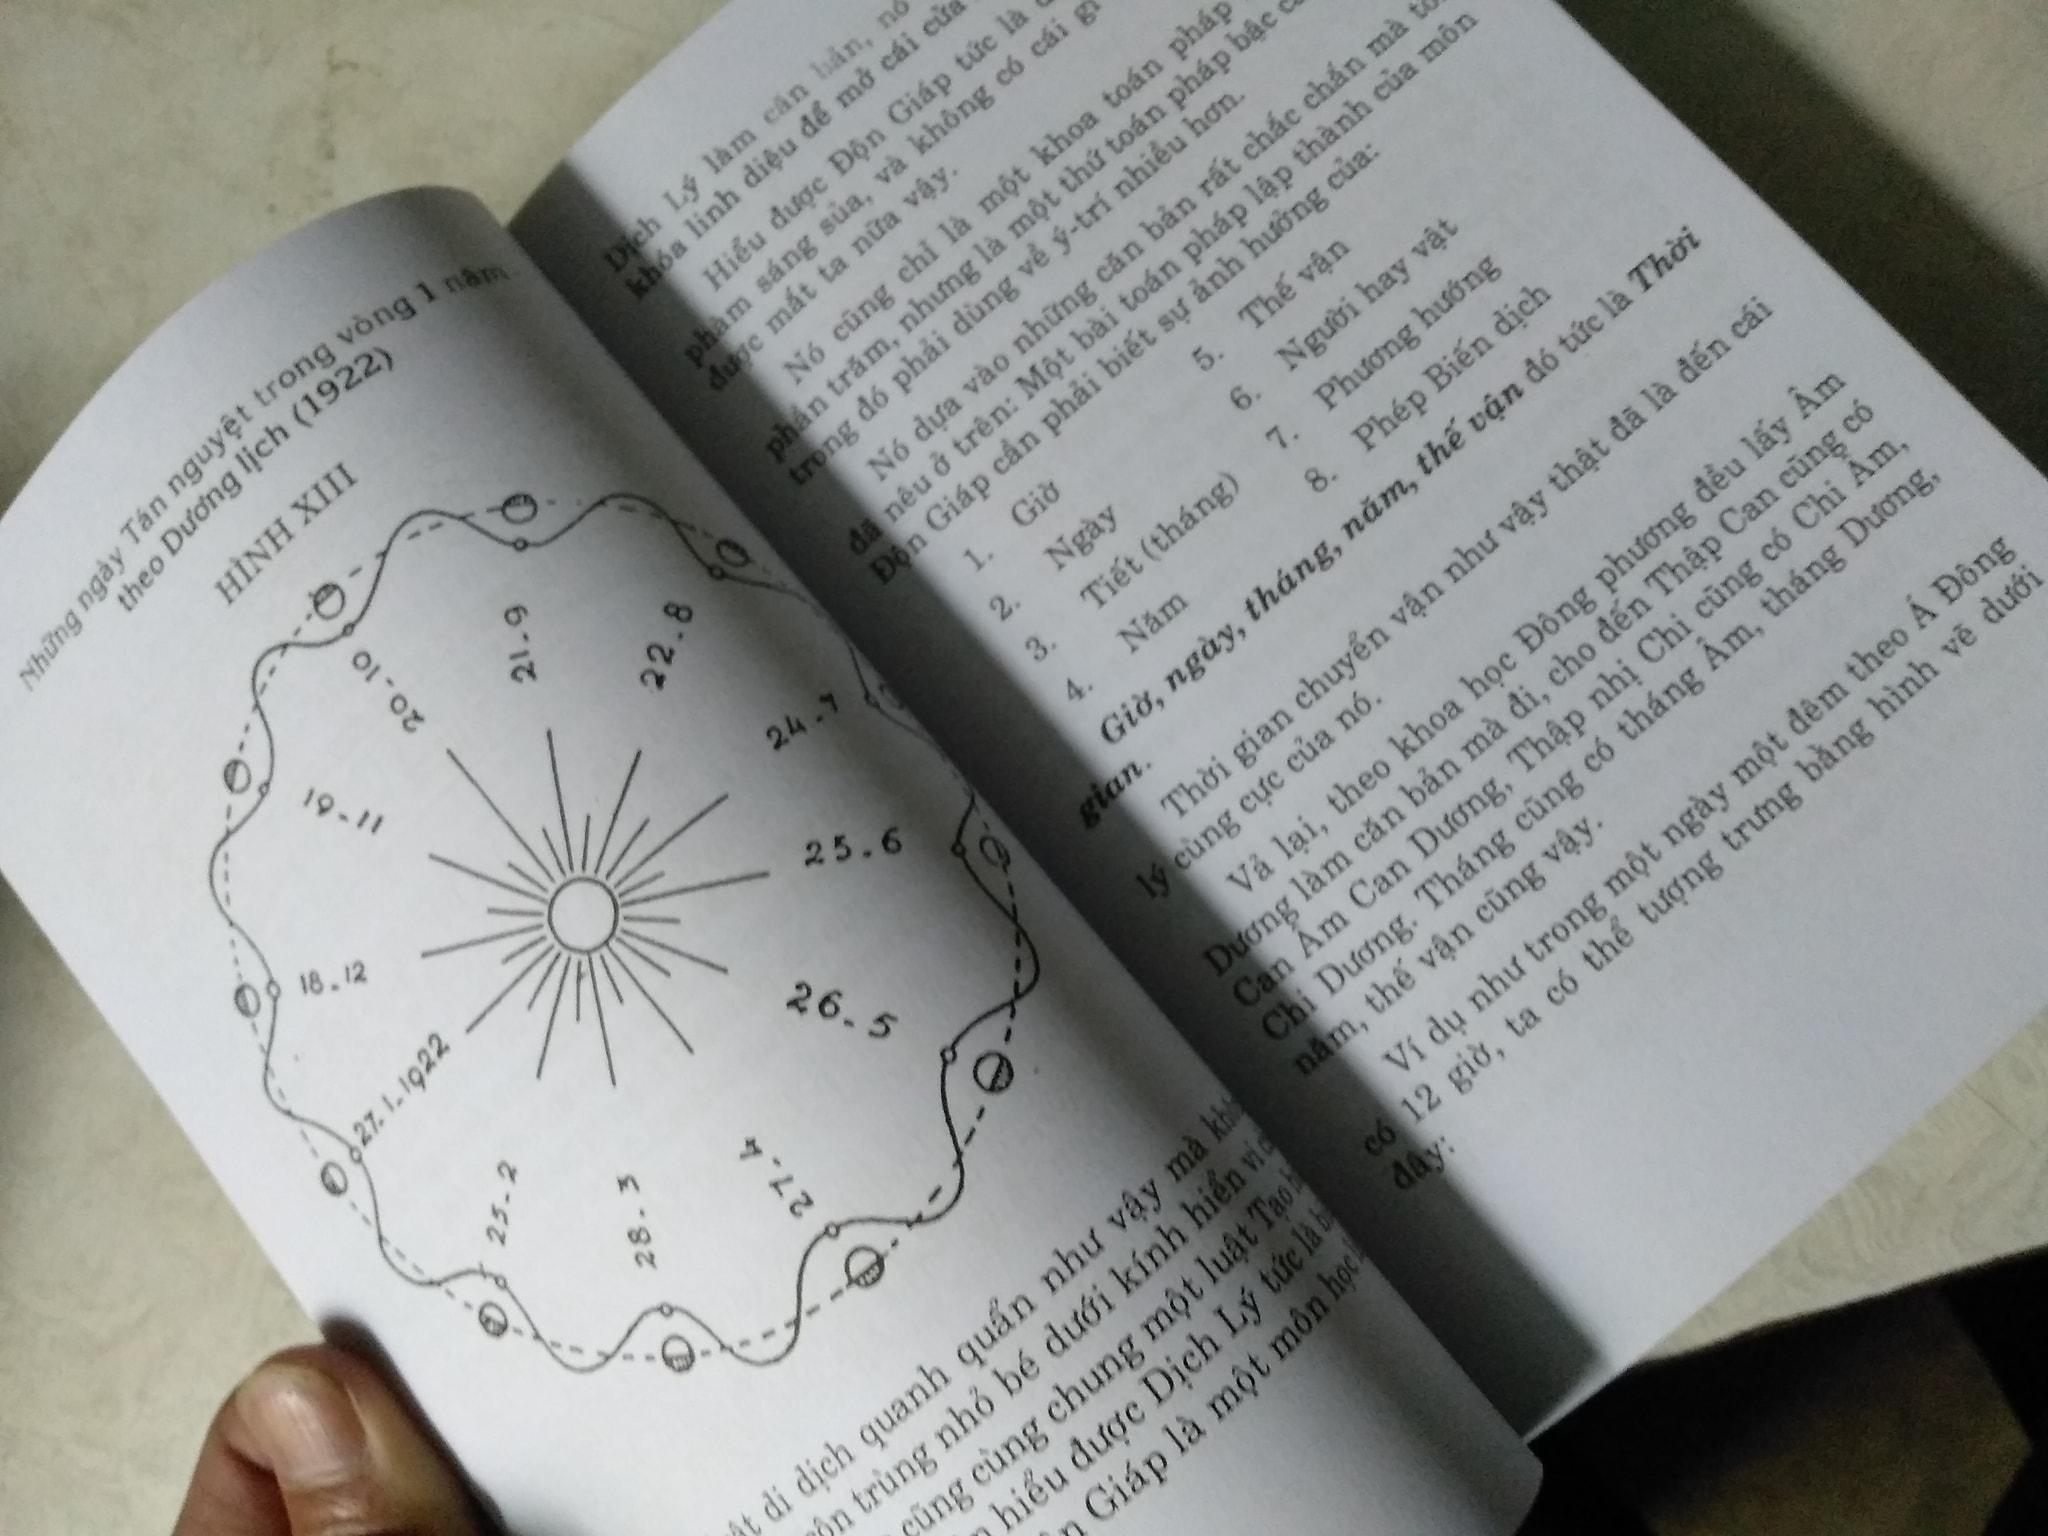 Những ngày Tán nguyệt trong vòng 1 năm
theo Dương lịch (1922)
HÌNH XIII
21.9
22.8
20-10
24.7
19-11
25.6
18.12
26-5
27.1.1922
25-2
28-3
27.4
di dịch quanh quẩn như vậy mà
trùng nhỏ bé dưới kính hiển vi
cũng cùng chung một luật Tạo
hiểu được Dịch Lý tức là
Giáp là một môn học
Dịch Lý làm căn bản, nó
khóa linh diệu để mở cái cửa
Hiểu được Độn Giáp tức là
phạm sáng sủa, và không có cái gì
được mắt ta nữa vậy.
Nó cũng chỉ là một khoa toán pháp
phần trăm, nhưng là một thứ toán pháp bậc
trong đó phải dùng về ý-trí nhiều hơn.
Nó dựa vào những căn bản rất chắc chắn mà
đã nêu ở trên: Một bài toán pháp lập thành của môn
Độn Giáp cần phải biết sự ảnh hưởng của:
1. Giờ
2. Ngày
3. Tiết (tháng)
4. Năm
5. Thế vận
6. Người hay vật
7. Phương hướng
8. Phép Biến dịch
Giờ, ngày, tháng, năm, thế vận đó tức là Thời
gian.
Thời gian chuyển vận như vậy thật đã là đến cái
lý cùng cực của nó.
Vả lại, theo khoa học Đông phương đều lấy Âm
Dương làm căn bản mà đi, cho đến Thập Can cũng có
Can Âm Can Dương, Thập nhị Chi cũng có Chi Âm,
Chi Dương. Tháng cũng có tháng Âm, tháng Dương,
năm, thế vận cũng vậy.
Ví dụ như trong một ngày một đêm theo Á Đông
có 12 giờ, ta có thể tượng trưng bằng hình vẽ dưới
đây: